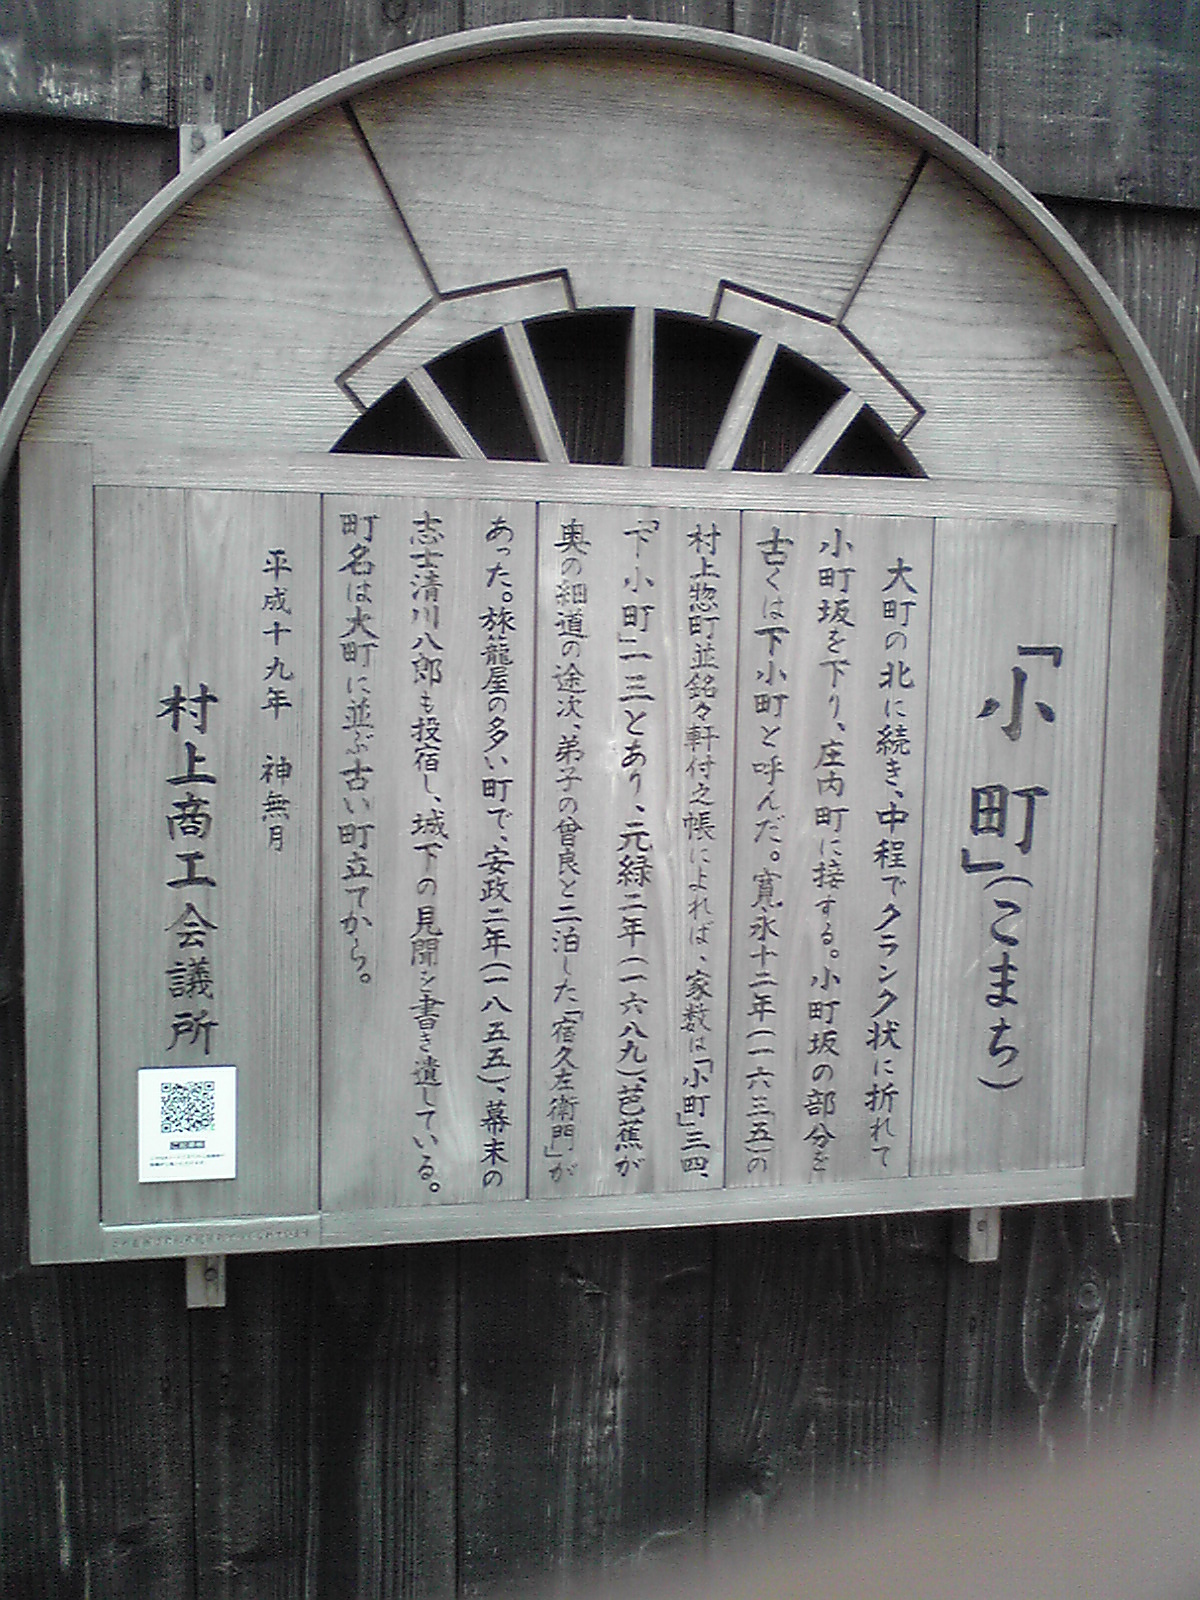 「小町」(こまち)
大町の北に続き、中程でクランク状に折れて
小町坂を下り、庄内町に接する。小町坂の部分を
古くは下小町と呼んだ。寛永十二年(一六三五)の
村上惣町並銘々軒付之帳によれば、家数は「小町」三四、
「下小町」二三とあり、元緑二年(一六八九)、芭蕉が
奥の細道の途次、弟子の曽良と二泊した「宿久左衛門」が
あった。旅籠屋の多い町で、安政二年(一八五五)、幕末の
志士清川八郎も投宿し、城下の見聞を書き遺している。
町名は大町に並ぶ古い町立てから。
平成十九年 神無月
村上商工会議所